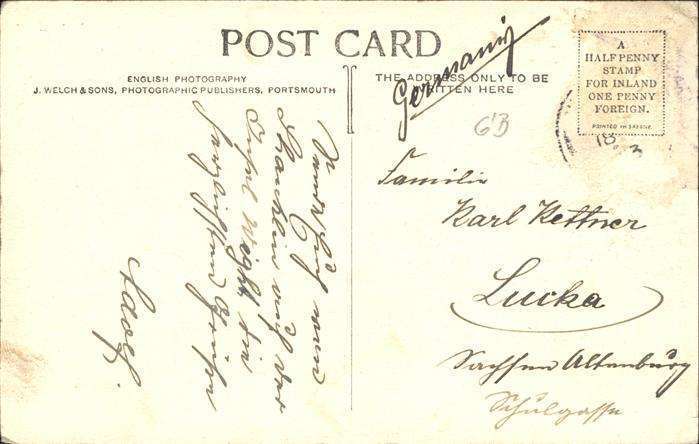 POST CARD
ENGLISH PHOTOGRAPHY
J. WELCH & SONS, PHOTOGRAPHIC PUBLISHERS, PORTSMOUTH
THE ADDRESS ONLY TO BE
WRITTEN HERE
Germaniy
A
HALFPENNY
STAMP
FOR INLAND
ONE PENNY
FOREIGN.
PRINTED IN SAXONY.
18
3
Familie
Karl Kettner
Lucka
Sachsen Altenburg
Schulgasse
Shanklin
Insel Wight die
herzlichsten Grüße
Adolf.